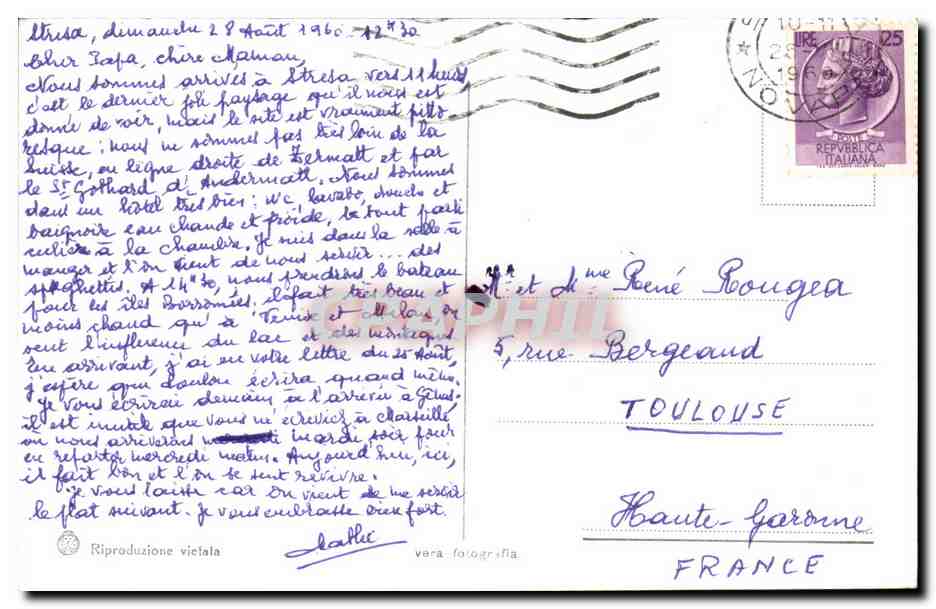 Stresa, dimanche 28 Août 1960 - 12H30
Cher Papa, chère Maman,
Nous sommes arrivés à Stresa vers 11 heures
c'est le dernier joli paysage qu'il nous est
donné de voir, mais le site est vraiment pitto
resque ; nous ne sommes pas très loin de la
Suisse, en ligne droite de Zermatt et par
le St Gothard d'Andermatt. Nous sommes
dans un hôtel très bien : WC, lavabo, douche et
baignoire eau chaude et froide, le tout parti
culier à la chambre. Je suis dans la salle à
manger et l'on vient de nous servir... des
spaghettis. A 14H30, nous prendrons le bateau
pour les îles Borromées. il fait très beau et
moins chaud qu'à Venise et Milan, on
sent l'influence du lac et des montagnes
En arrivant, j'ai eu votre lettre du 25 Août,
j'espère que écrira quand même.
Je vous écrirai demain à l'arrivée à Gênes.
il est inutile que vous m'écriviez à Marseille
où nous arriverons mardi soir pour
en repartir mercredi matin. Aujourd'hui, ici,
il fait bon et l'on se sent revivre.
Je vous laisse car on vient de me servir
le plat suivant. Je vous embrasse bien fort.
Riproduzione vietata
vera fotografia
10-11
28
1960
NOVARA
LIRE 25
POSTE
REPVBBLICA
ITALIANA
Mr et Mme René Rougea
5, rue Bergeaud
TOULOUSE
Haute-Garonne
FRANCE
CPAPHIL